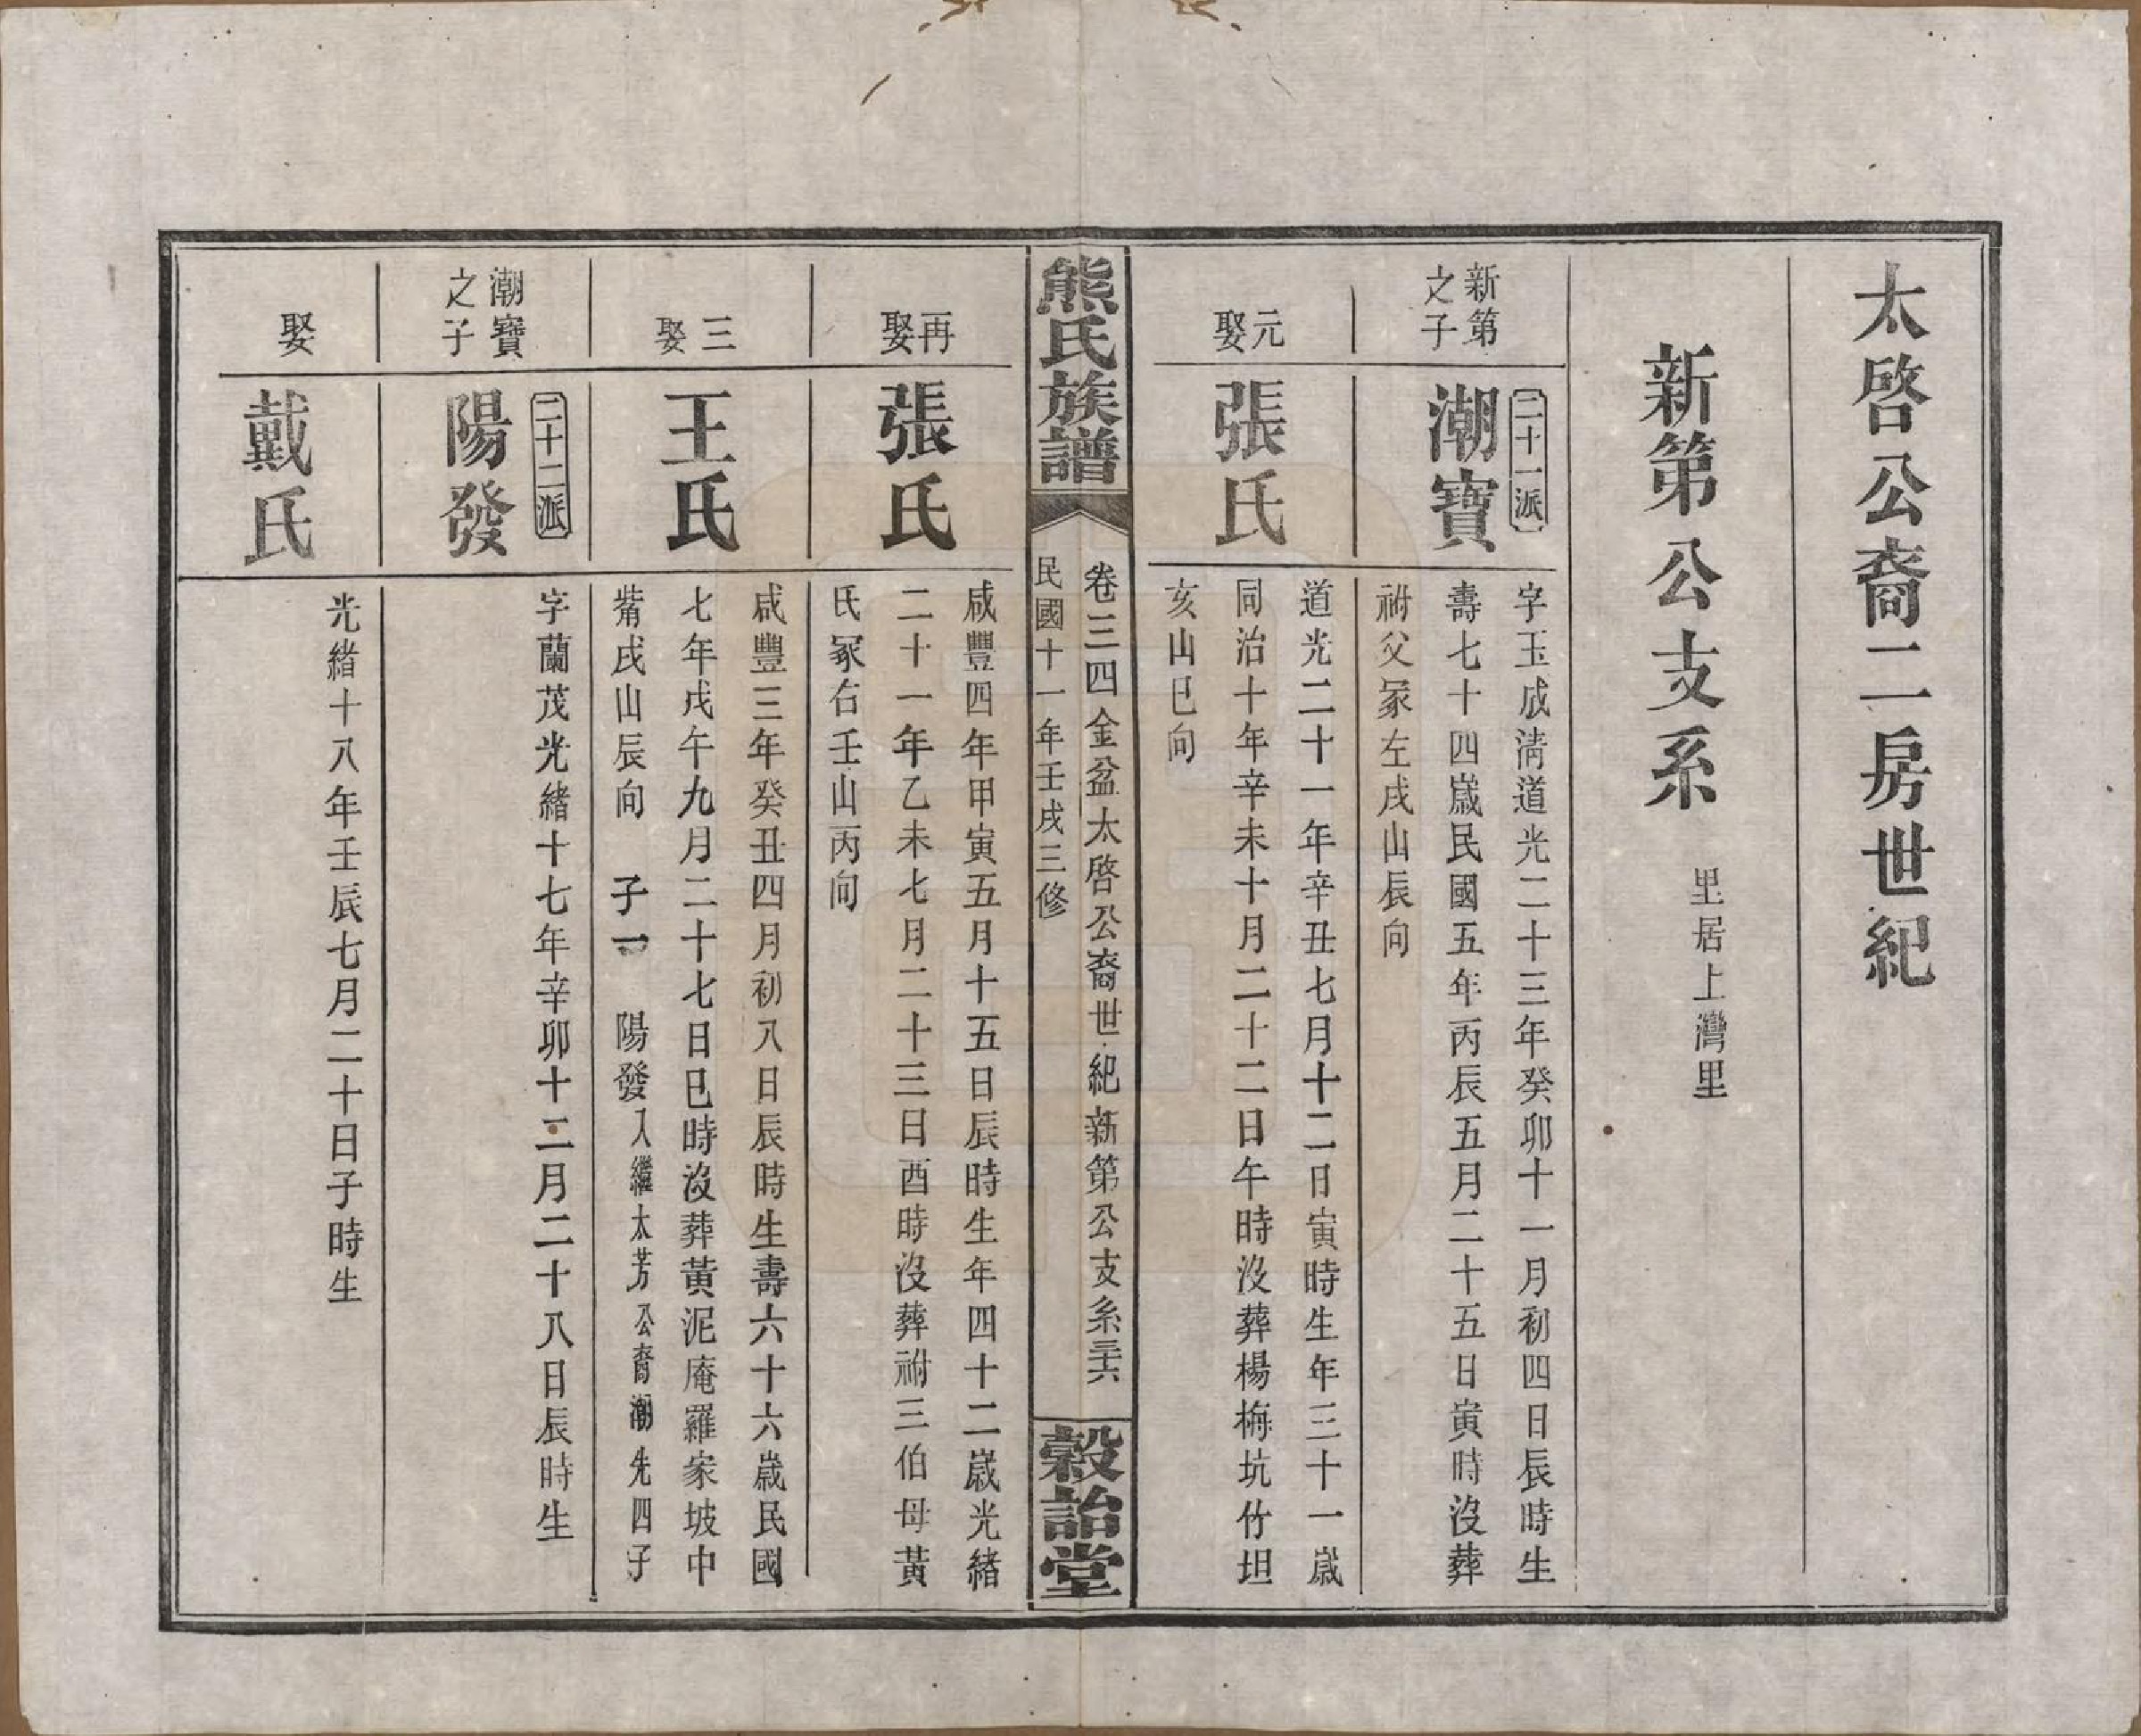 太啓公裔二房世紀
新第公支系
里居上灣里
新第
之子
二十一派
潮寶
字玉成淸道光二十三年癸卯十一月初四日辰時生
壽七十四歲民國五年丙辰五月二十五日寅時沒葬
祔父冢左戌山辰向
元
娶
張氏
道光二十一年辛丑七月十二日寅時生年三十一歲
同治十年辛未十月二十二日午時沒葬楊梅坑竹坦
亥山巳向
熊氏族譜
卷三四金盆太啓公裔世紀新第公支系三六
民國十一年壬戌三修
穀詒堂
再
娶
張氏
咸豐四年甲寅五月十五日辰時生年四十二歲光緒
二十一年乙未七月二十三日酉時沒葬祔三伯母黃
氏冢右壬山丙向
三
娶
王氏
咸豐三年癸丑四月初八日辰時生壽六十六歲民國
七年戊午九月二十七日巳時沒葬黃泥庵羅家坡中
觜戌山辰向 子一 陽發入繼太芳公裔潮先四子
潮寶
之子
二十二派
陽發
字蘭茂光緒十七年辛卯十二月二十八日辰時生
娶
戴氏
光緒十八年壬辰七月二十日子時生